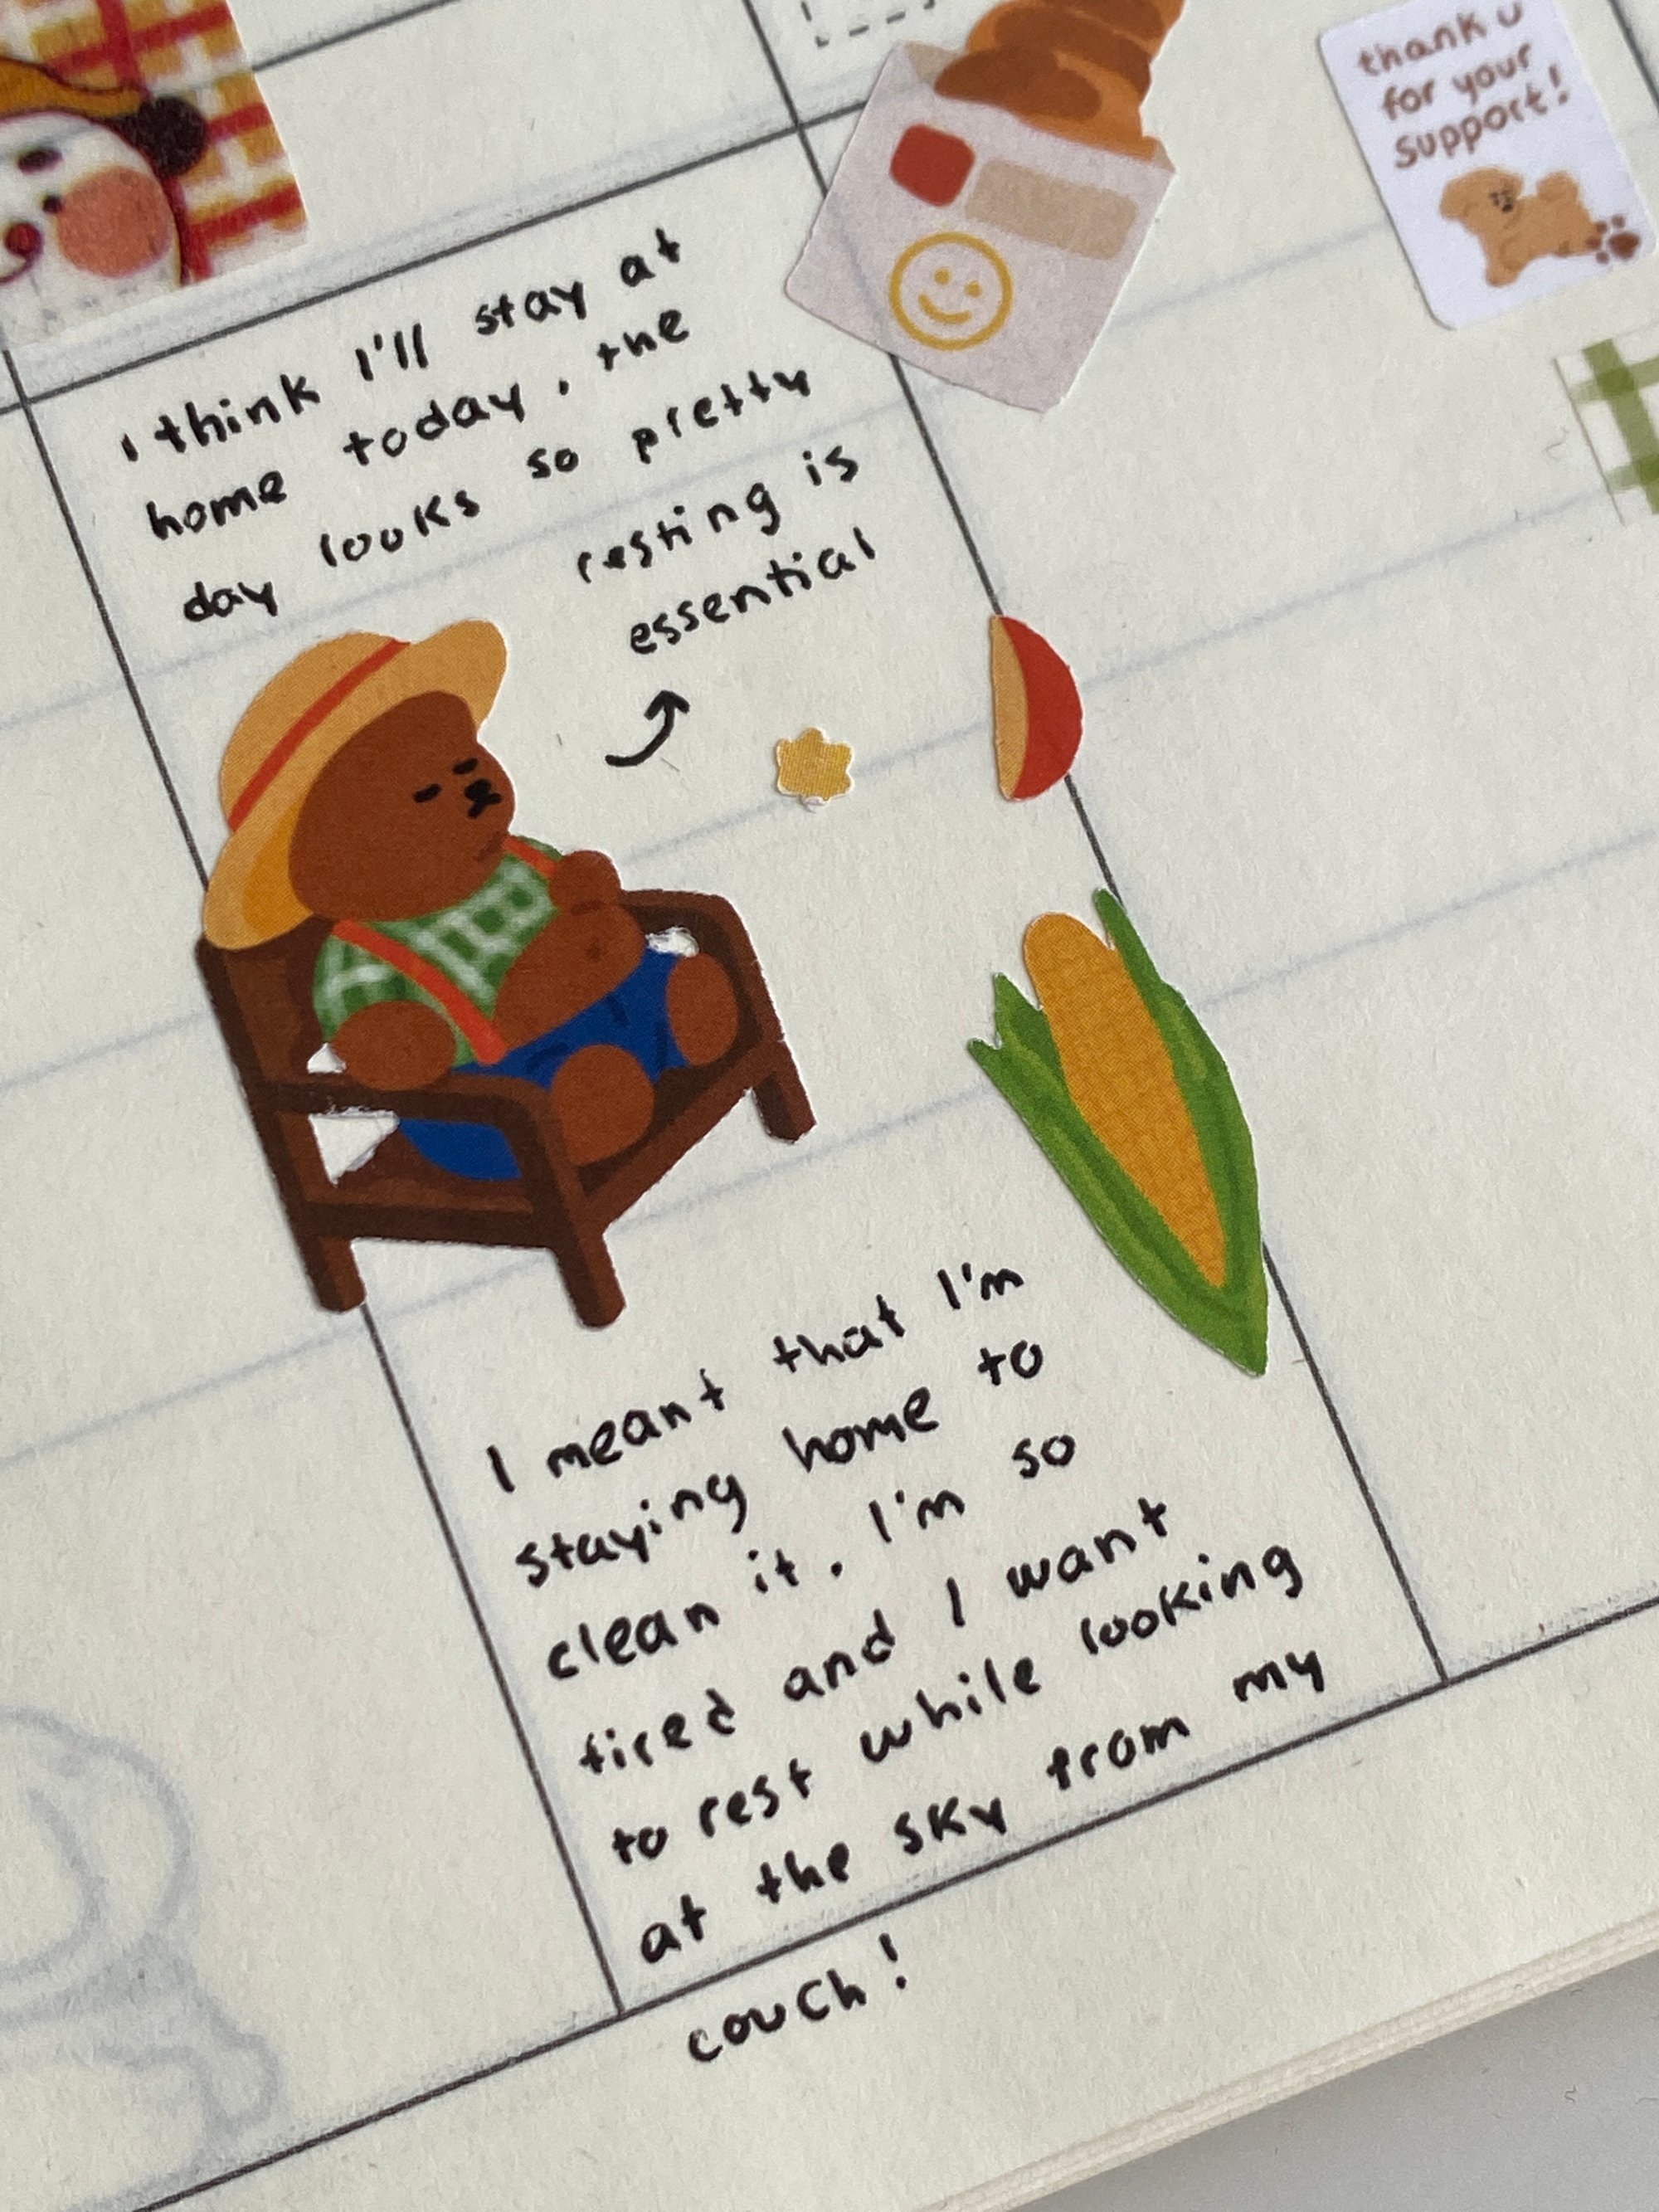 thank u
for your
support!
I think I'll stay at
home today. the
day looks so pretty
resting is
essential
I meant that I'm
staying home to
clean it. I'm so
tired and I want
to rest while looking
at the sky from my
couch!